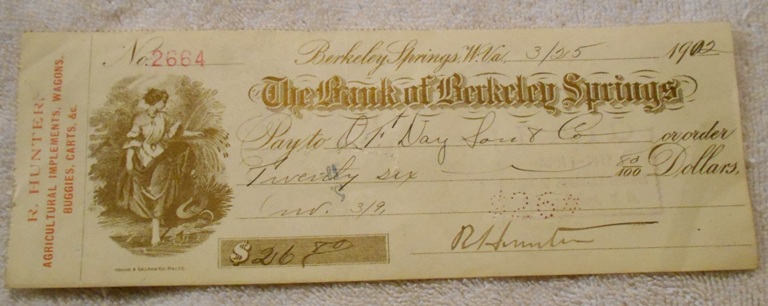 R. HUNTER,
AGRICULTURAL IMPLEMENTS, WAGONS,
BUGGIES, CARTS, &c.
No. 2664
Berkeley Springs, W. Va. 3/25 1902
The Bank of Berkeley Springs
Pay to Day Son & Co or order
Twenty six 80/100 Dollars.
3/9,
$26 80
R Hunter